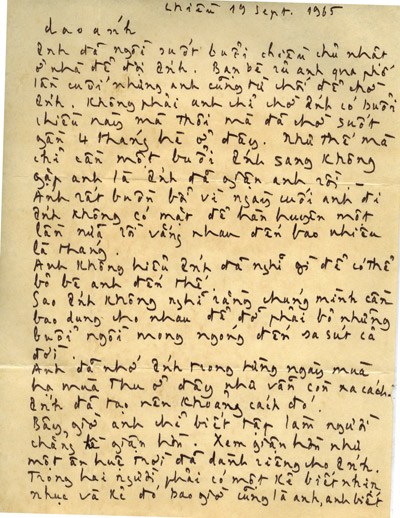 chiều 19 sept. 1965
dao ánh
Ánh để ngồi suốt buổi chiều chủ nhật
ở nhà để đợi Ánh. Bạn bè rủ anh qua phố
lần cuối nhưng anh cũng từ chối để chờ
Ánh. Không phải anh chỉ chờ Ánh có buổi
chiều này mà thôi mà đã chờ suốt
gần 4 tháng hè ở đây. Như thế mà
chỉ cần một buổi Ánh sang không
gặp anh là Ánh để giận anh rồi.
Anh rất buồn bã vì ngày cuối anh đi
Ánh không có mặt để hàn huyên một
lần nữa rồi vắng nhau đến bao nhiêu
là tháng.
Anh không hiểu Ánh đã nghĩ gì để có thể
bỏ bê anh đến thế.
Sao Ánh không nghĩ rằng chúng mình cần
bao dung cho nhau để đỡ phải bỏ những
buổi ngồi mong ngóng đến sa sút cả
đời.
Anh đã nhớ Ánh trong từng ngày mùa
hạ mùa thu ở đây như vẫn còn xa cách.
Ánh đã tạo nên khoảng cách đó.
Bây giờ anh chỉ biết tập làm người
chẳng giận hờn. Xem giận hờn như
một ân huệ trời đã dành riêng cho Ánh.
Trong hai người, phải có một kẻ biết nhịn
nhục và kẻ đó bao giờ cũng là anh, anh biết